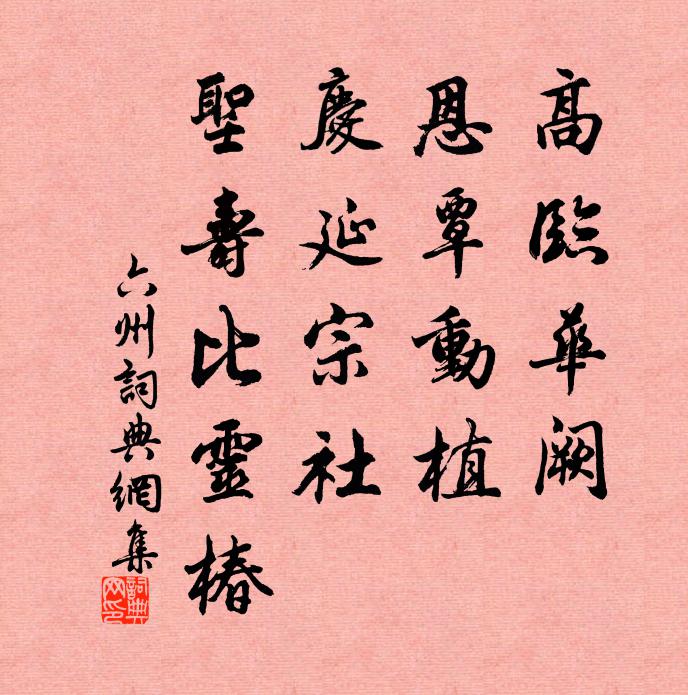 高臨華闕
恩覃動植
慶延宗社
聖壽比靈椿
六州詞典網集
詞典網